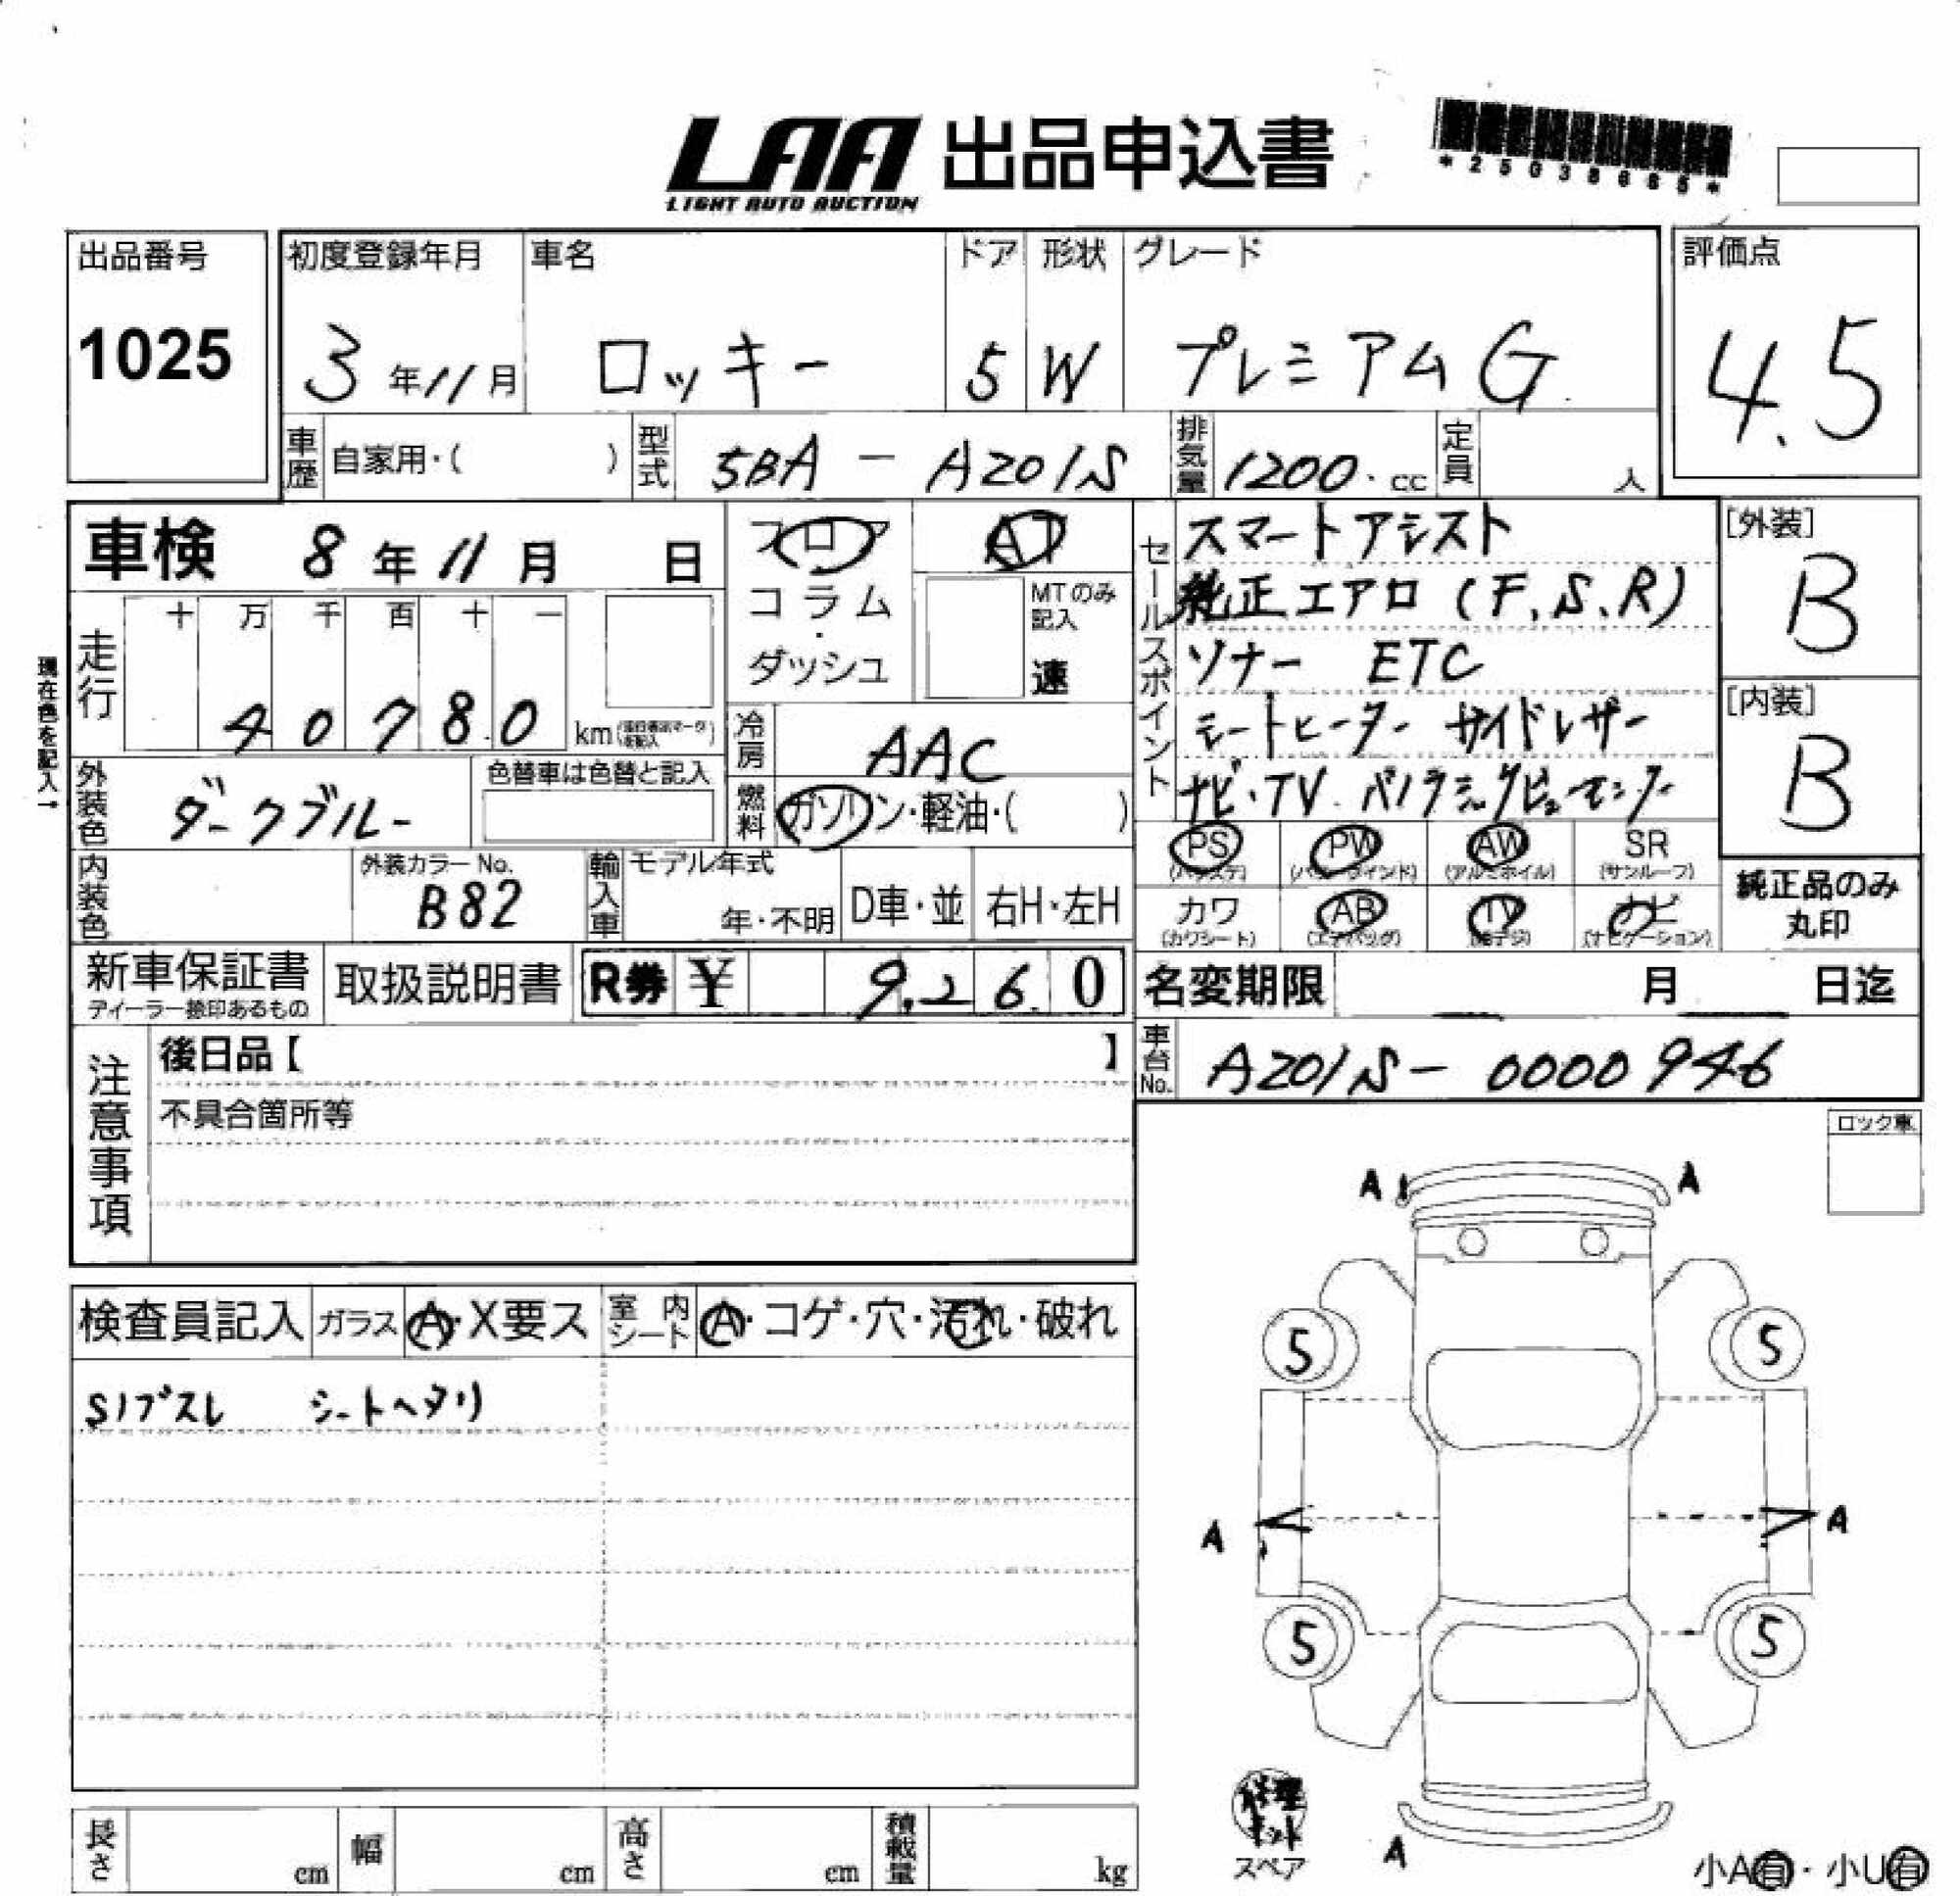 LAA 出品申込書
LIGHT AUTO AUCTION
*25038665*
出品番号 初度登録年月 車名 ドア 形状 グレード 評価点
1025 3年11月 ロッキー 5 W プレミアムG 4.5
車歴 自家用・( ) 型式 5BA - A201S 排気量 1200. cc 定員 人
車検 8年11月 日
フロア・コラム・ダッシュ
AT
MTのみ記入
速
セールスポイント
スマートアシスト
純正エアロ (F,S,R)
ソナー ETC
シートヒーター サイドレザー
ナビ・TV パノラミックビューモニター
[外装]
B
[内装]
B
現在色を記入→
走行 十 万 千 百 十 一
40780 km
冷房 AAC
外装色 ダークブルー
色替車は色替と記入
燃料 ガソリン・軽油・( )
内装色
外装カラーNo.
B82
輸入車 モデル年式 年・不明 D車・並 右H・左H
PS PW AW SR
(パワステ) (パワーウインド) (アルミホイル) (サンルーフ)
カワ AB TV ナビ
(カワシート) (エアバッグ) (地デジ) (ナビゲーション)
純正品のみ
丸印
新車保証書 取扱説明書 R券 ¥ 9,260
ディーラー捺印あるもの
名変期限 月 日迄
注意事項
後日品【 】
不具合箇所等
車台No. A201S-0000946
ロック車
A A
5 5
A A
5 5
A
検査員記入 ガラス A・X要ス 室内シート A・コゲ・穴・汚れ・破れ
Sノブスレ シートヘタリ
修理キット
スペア
小A有・小U有
長さ cm 幅 cm 高さ cm 積載量 kg